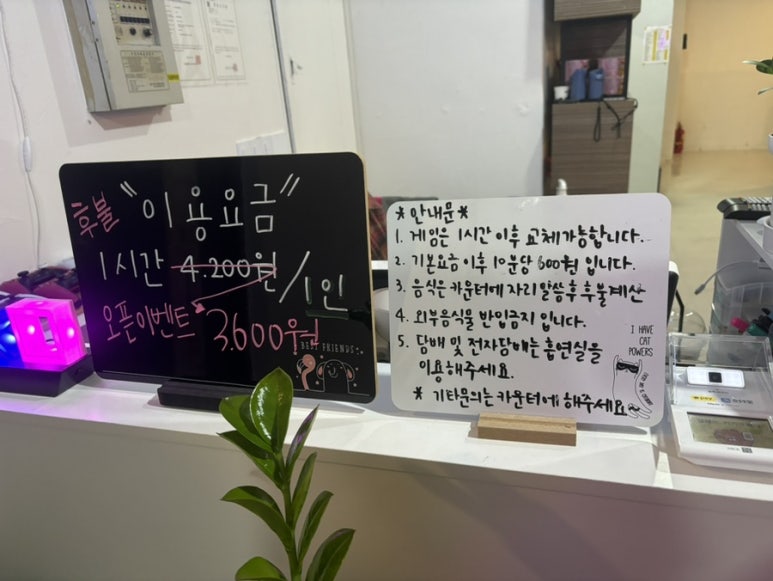 후불 "이용요금"
1시간 4.200원/1인
오픈이벤트 3.600원
BEST FRIENDS
*안내문*
1. 게임은 1시간 이후 교체가능합니다.
2. 기본요금 이후 10분당 600원 입니다.
3. 음식은 카운터에 자리 말씀 후 후불계산
4. 외부음식물 반입금지 입니다.
5. 담배 및 전자담배는 흡연실을
이용해주세요.
* 기타문의는 카운터에 해주세요
I HAVE
CAT
POWERS